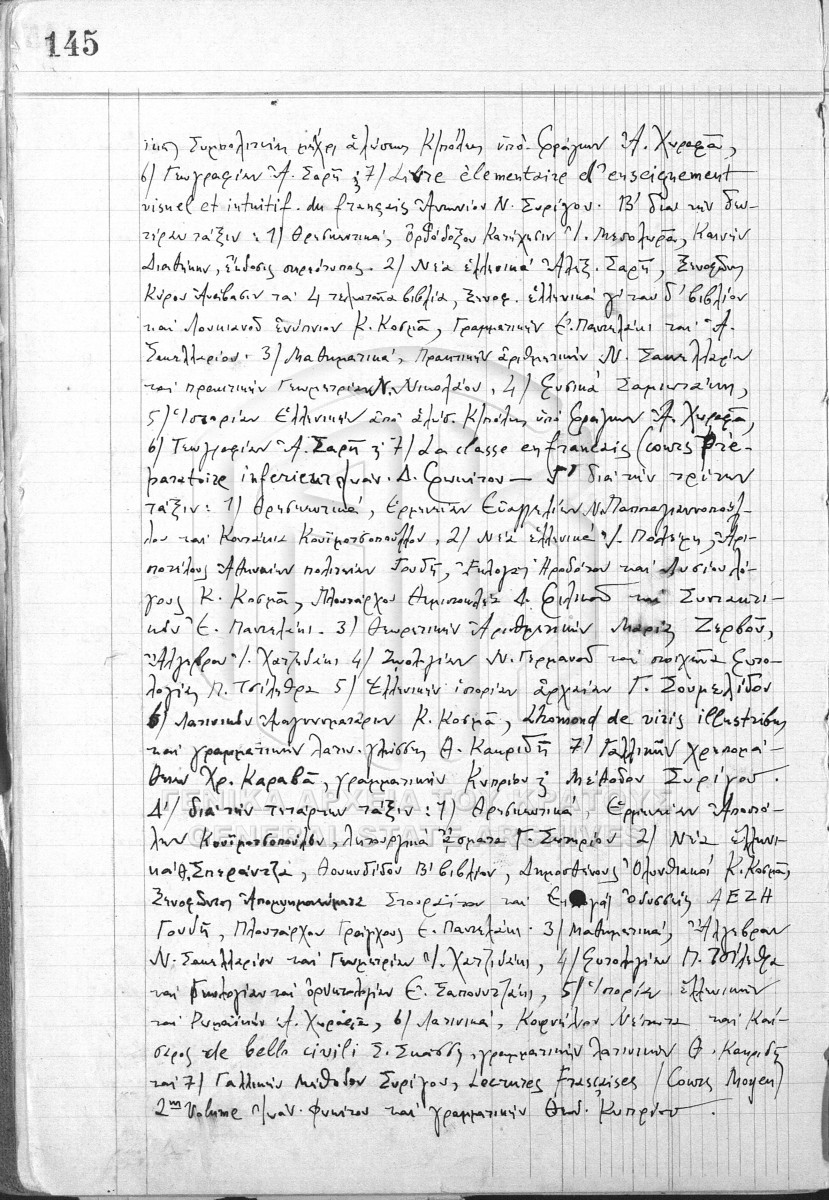 145
Συμπολιτείαν μέχρι ἁλώσεως Κ/πόλεως ὑπὸ Φράγκων Ἀ. Χωραφᾶ,
6) Γεωγραφίαν Ἀ. Σαρῆ ἢ 7) Livre élementaire d'enseignement
visuel et intuitif du français Ἀντωνίου Ν. Συρίγου. Β' διὰ τὴν δευ-
τέραν τάξιν: 1) Θρησκευτικά, Ὀρθόδοξον Κατήχησιν Ἰ. Μεσολωρᾶ, Καινὴν
Διαθήκην, ἔκδοσις στερεότυπος. 2) Νέα ἑλληνικά Ἀλεξ. Σαρῆ, Ξενοφῶντος
Κύρου Ἀνάβασιν τὰ 4 τελευταῖα βιβλία, Ξενοφ. ἑλληνικά γ' καὶ δ' βιβλίον
καὶ Λουκιανοῦ Ἐνύπνιον Κ. Κοσμᾶ, Γραμματικὴν Ε. Παντελάκι καὶ Ἀ.
Σακελλαρίου. 3) Μαθηματικά, Πρακτικὴν ἀριθμητικὴν Ν. Σακελλαρίου
καὶ πρακτικὴν Γεωμετρίαν Ν. Νικολάου, 4) Φυσικά
5) Ἱστορίαν Ἑλληνικὴν ἀπὸ ἁλώσ. Κ/πόλεως ὑπὸ Φράγκων Ἀ. Χωραφᾶ,
6) Γεωγραφίαν Ἀ. Σαρῆ ἢ 7) La classe en francais (cours Pré-
paratoire inferieur) Ἰωάν. Δ. Φωκίτου — Γ' διὰ τὴν τρίτην
τάξιν: 1) Θρησκευτικά, Ἑρμηνείαν Εὐαγγελίων Ν. Παπαγιαννοπού-
λου καὶ Κοντάκια Κουϊμουτσοπούλου, 2) Νέα ἑλληνικά Ἰ. Πολέμη, Ἀρι-
στοτέλους Ἀθηναίων πολιτείαν Γουδῆ, Ἐκλογαὶ Ἡροδότου καὶ Λυσίου λό-
γους Κ. Κοσμᾶ, Πλουτάρχου Θεμιστοκλέα Δ. Φιλικοῦ καὶ Συντακτι-
κὸν Ε. Παντελάκι. 3) Θεωρητικὴν Ἀριθμητικὴν Μαρίας Ζερβοῦ,
Ἄλγεβραν Ἰ. Χατζιδάκι 4) Ζωολογίαν Ν. Γερμανοῦ καὶ στοιχεῖα Φυτο-
λογίας Π. Τσίληθρα 5) Ἑλληνικὴν ἱστορίαν ἀρχαίαν Γ. Σουμελίδου
6) Λατινικὸν Ἀναγνωσματάριον Κ. Κοσμᾶ, Lhomond de viris illustribus
καὶ γραμματικὴν λατιν. γλώσσης Θ. Κακριδῆ 7) Γαλλικὴν χρηστομά-
θειαν Χρ. Καραβᾶ, γραμματικὴν Κυπρίου ἢ Μέθοδον Συρίγου.
Δ') διὰ τὴν τετάρτην τάξιν: 1) Θρησκευτικά, Ἑρμηνείαν Ἀποστό-
λων Κουϊμουτσοπούλου, λειτουργικά ᾄσματα Γ. Σωτηρίου 2) Νέα ἑλληνι-
κά Θ. Σπεράντζα, Θουκυδίδου Β' βιβλίον, Δημοσθένους Ὀλυνθιακοί Κ. Κοσμᾶ,
Ξενοφῶντος Ἀπομνημονεύματα Σταυραΐτου καὶ Ὀδυσσείας ΑΕΖΗ
Γουδῆ, Πλουτάρχου Γράκχους Ε. Παντελάκι. 3) Μαθηματικά, Ἄλγεβραν
Ν. Σακελλαρίου καὶ Γεωμετρίαν Ἰ. Χατζιδάκι, 4) Φυτολογίαν Π. Τσίληθρα
καὶ Γεωλογίαν καὶ ὀρυκτολογίαν Ε. Σαπουντζάκι, 5) Ἱστορίαν ἑλληνικὴν
καὶ Ρωμαϊκὴν Ἀ. Χωραφᾶ, 6) Λατινικά, Κορνηλίου Νέπωτα καὶ Καί-
σαρος de bello civili Σ. Σκάσση, γραμματικὴν λατινικὴν Θ. Κακριδῆ
καὶ 7) Γαλλικὴν Μέθοδον Συρίγου, Lectures Françaises (Cours Moyen)
2ᵐ Volume Ἰωάν. Φωκίτου καὶ γραμματικὴν Θεοδ. Κυπρίου.
ΓΕΝΙΚΑ ΑΡΧΕΙΑ ΤΟΥ ΚΡΑΤΟΥΣ
GENERAL STATE ARCHIVES